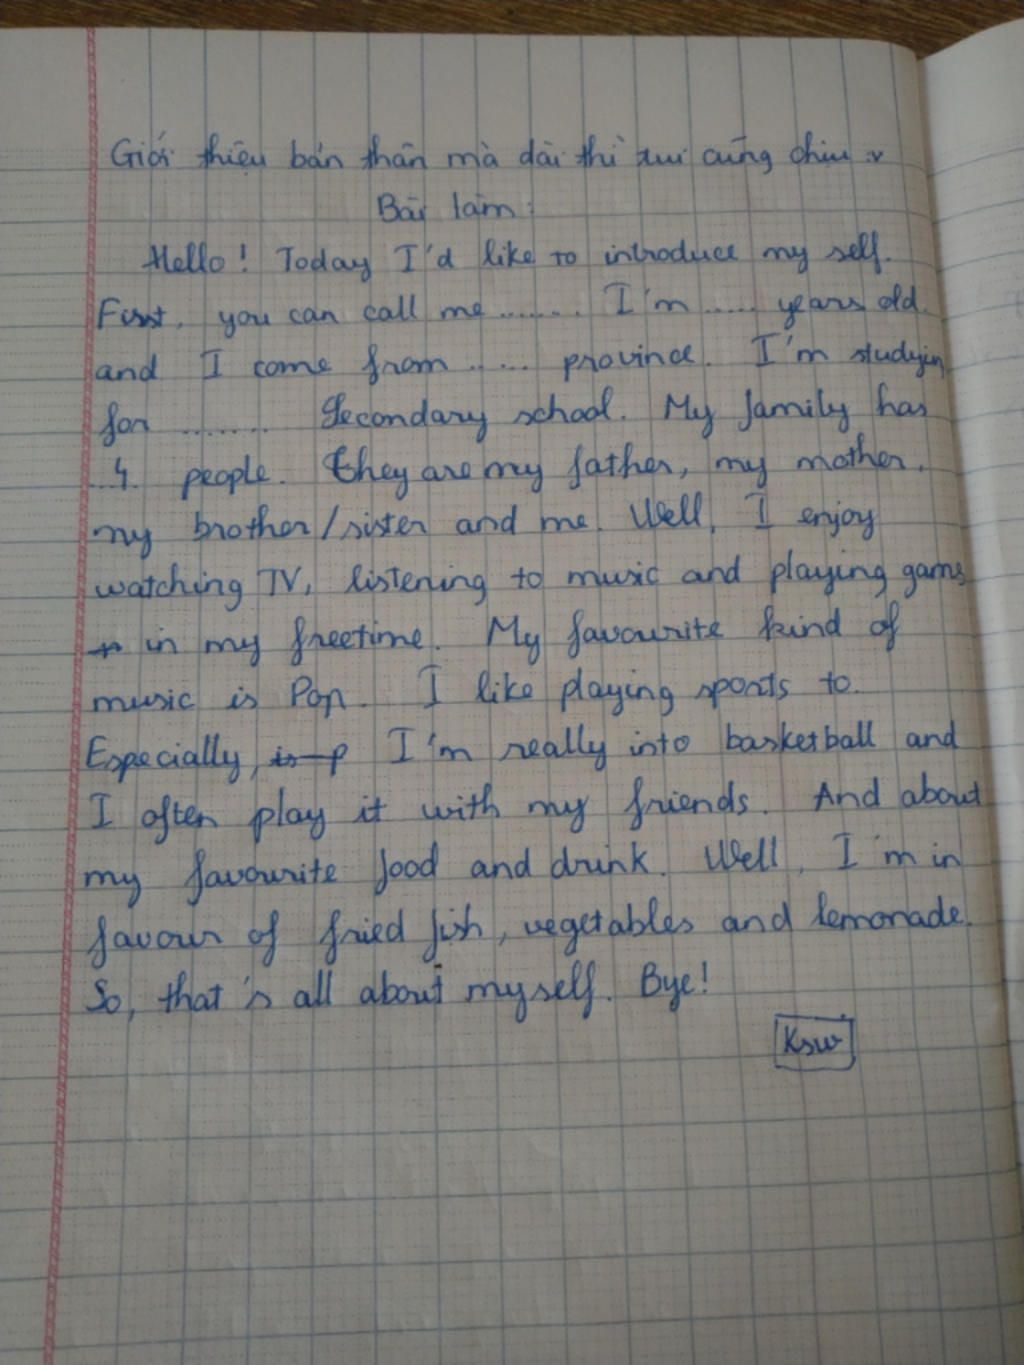 Giới thiệu bản thân mà dài thì xui cũng chịu :v
Bài làm:
Hello! Today I'd like to introduce my self.
First, you can call me ........ I'm ...... years old.
and I come from ...... province. I'm studyin
for ........ Secondary school. My family has
..4.. people. they are my father, my mother,
my brother/sister and me. Well, I enjoy
watching TV, listening to music and playing games
in my freetime. My favourite kind of
music is Pop. I like playing sports to.
Especially, I'm really into basketball and
I often play it with my friends. And about
my favourite food and drink. Well, I'm in
favour of fried fish, vegetables and lemonade.
So, that's all about myself. Bye!
Ksw